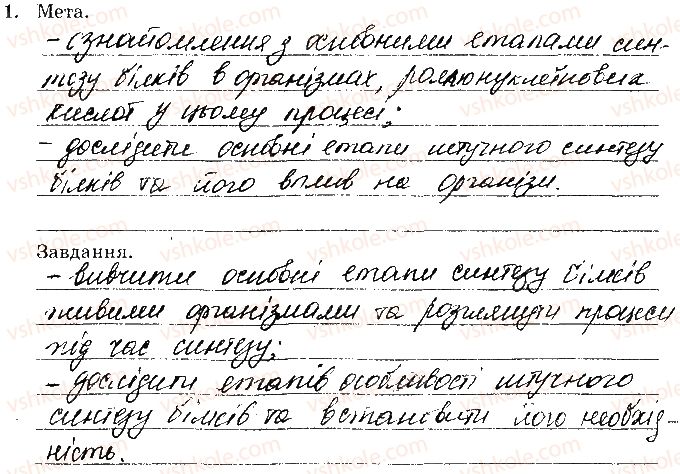 1. Мета.
- ознайомлення з основними етапами син-
тезу білків в організмах, роллю нуклеїнових
кислот у цьому процесі;
- дослідити основні етапи штучного синтезу
білків та його вплив на організм.
Завдання.
- вивчити основні етапи синтезу білків
живими організмами та розглянути процеси
під час синтезу;
- дослідити етапів особливості штучного
синтезу білків та встановити його необхід-
ність.